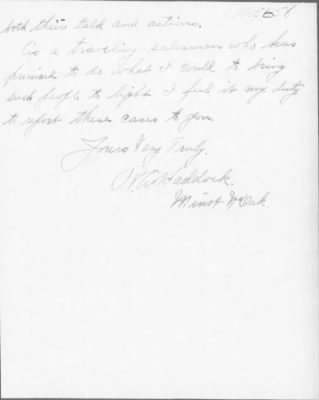 both this talk and actions.
As a traveling salesman who has
promised to do what I could to bring
such people to light I feel it my duty
to report these cases to you.
Yours Very Truly.
Haddock.
Minot N Dak